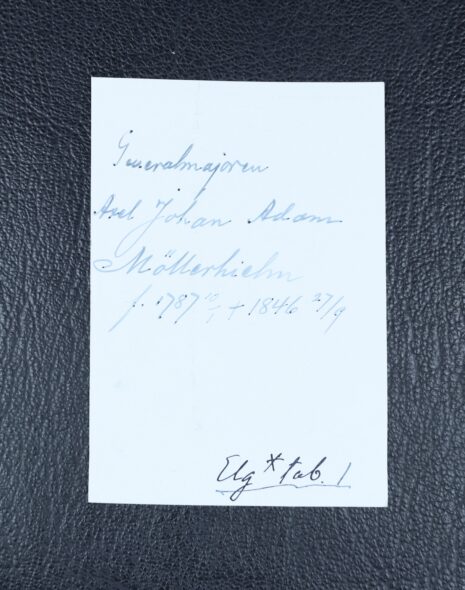 Generalmajoren
Axel Johan Adam
Möllerhielm
f. 1787 10/1 † 1846 27/9
Elg * tab. 1